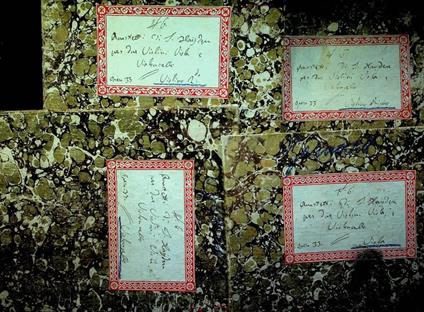 N. 6
Quartetti Di G. Haÿden
per due Violini Viola, e
Violoncello
Opera 33
Violino
N. 6
Quartetti Di G. Hayden
per Due Violini Viola, e
Violoncello
Opera 33
Violino
N. 6
Quartetti Di G. Hayden
per Due Violini Viola, e
Violoncello
Opera 33
Violoncello
N. 6
Quartetti Di G. Hayden
per Due Violini Viola, e
Violoncello
Opera 33
Viola